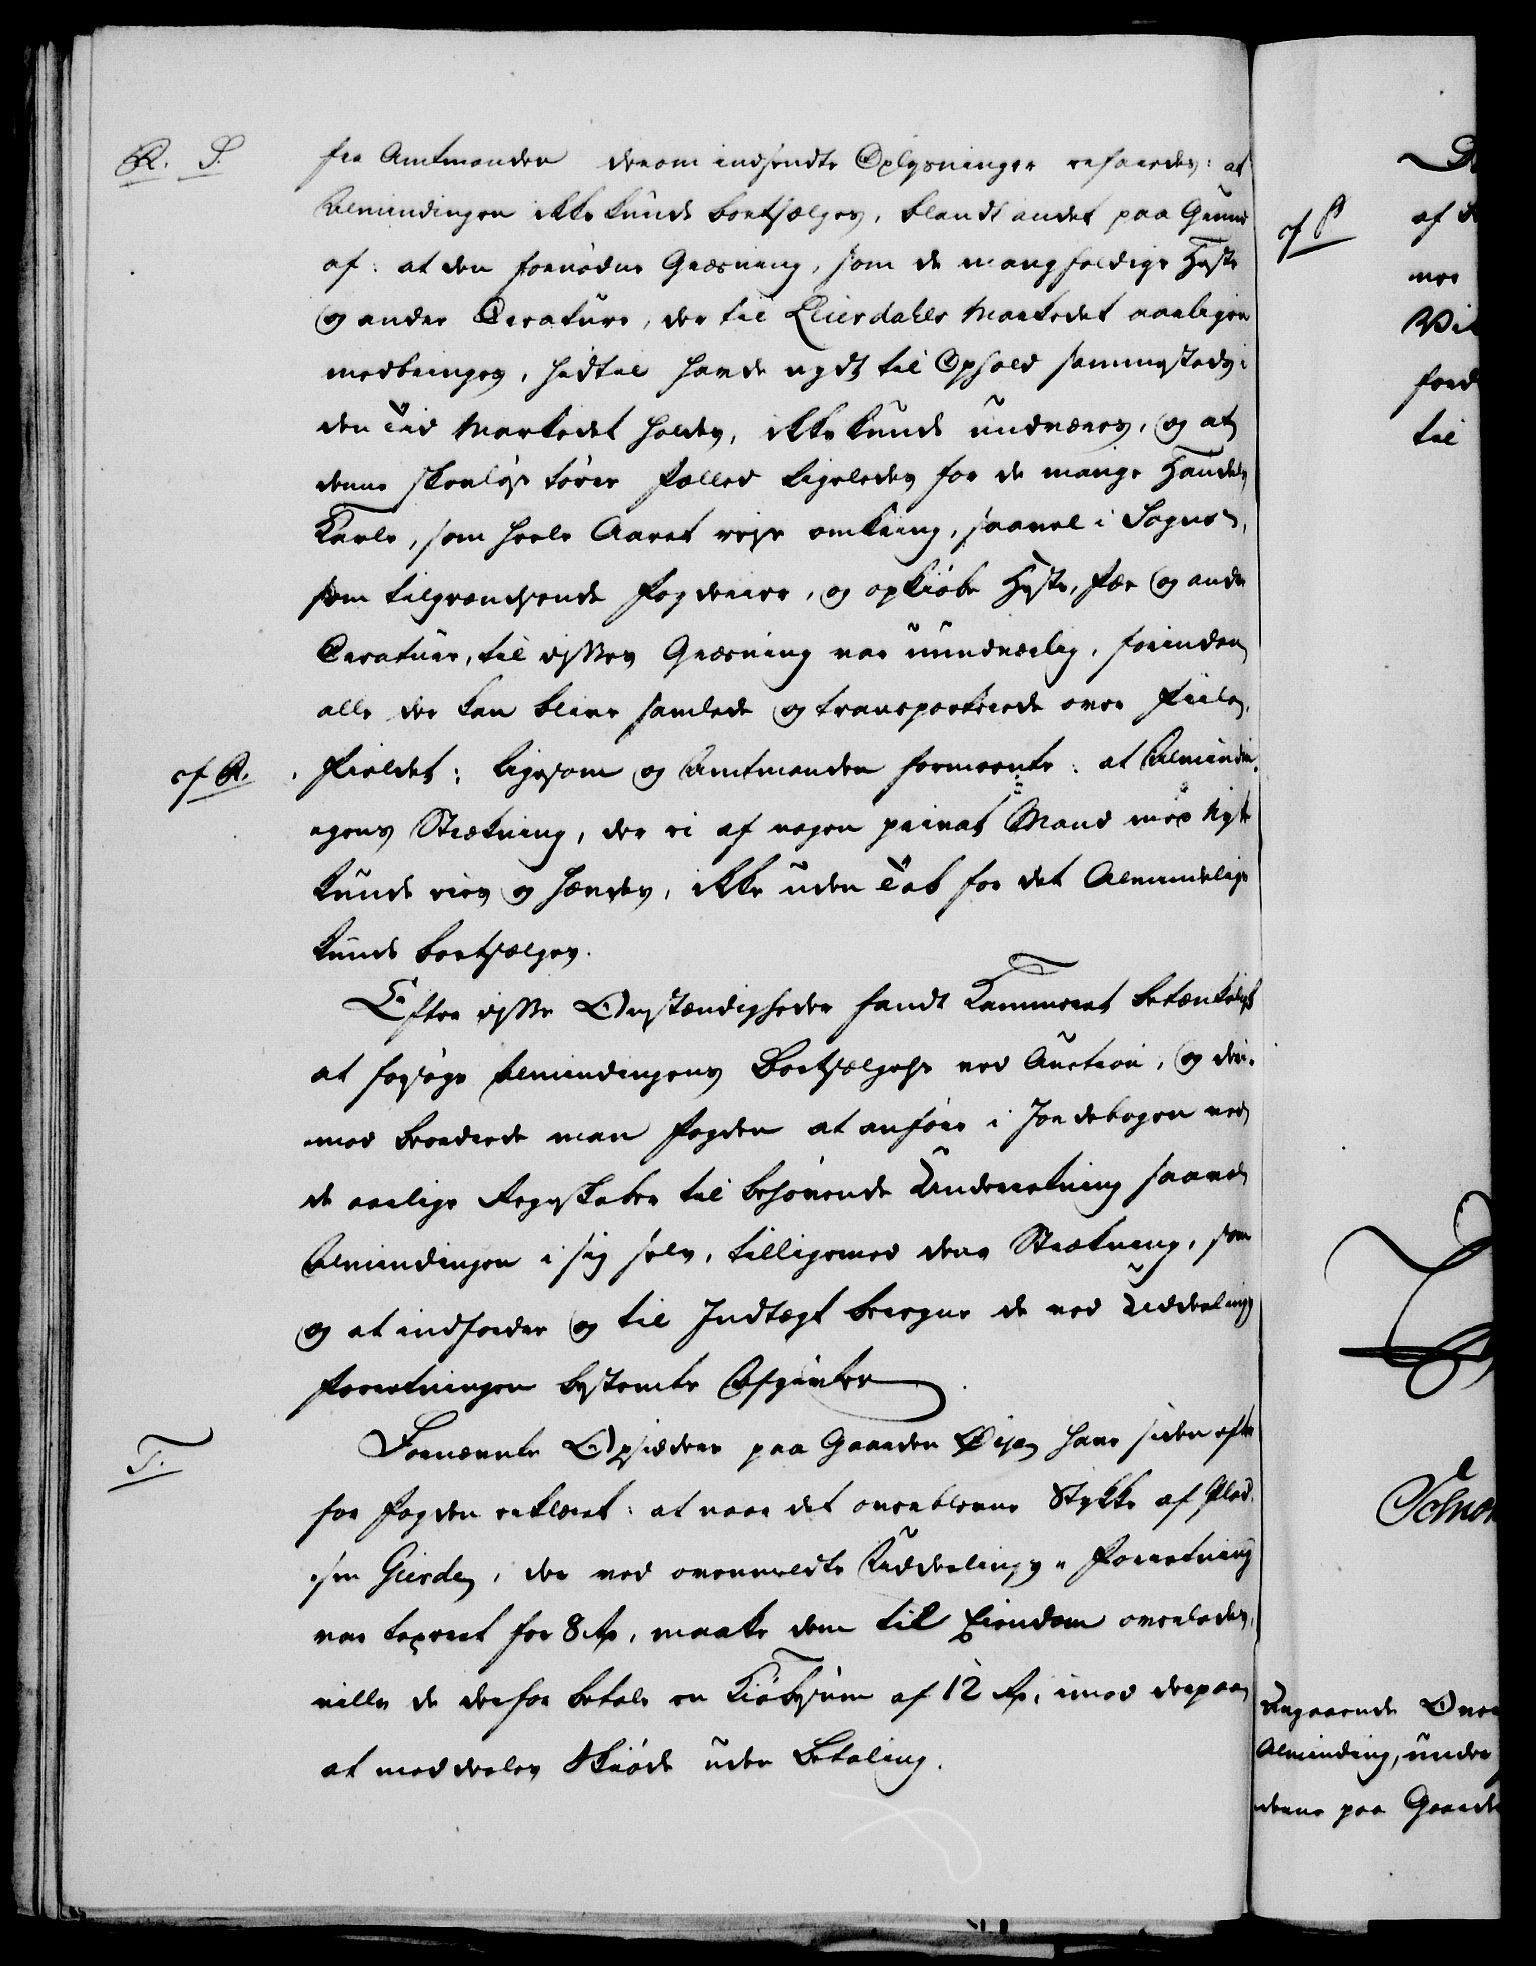 R. S.
fra Amtmanden derom indsendte Oplysninger erfaredes: at
Almindingen ikke kunde bortsælges, blandt andet paa Grund
af: at den fornødne Græsning, som de mangfoldige Heste
og andre Creature, der til Leierdahls Markedet aarligen
medbringes, hidtil havde nydt til Ophold sammesteds i
den Tid Markedet holdes, ikke kunde undværes, og at
denne skovløse tørre Fælled ligeledes for de mange Handels
Karle, som heele Aaret reyse omkring, saavel i Sogns,
som tilgrændsende Fogderier, og opkiøbe Heste, Fæe og andre
Creature, til disses Græsning var uundværlig, forinden
alle der kan blive samlede og transporterede over Fiele-
cf R.
Fieldet; ligesom og Amtmanden formeente: at Almindin-
gens Strækning, der ei af nogen privat Mand med Nytte
kunde eies og hævdes, ikke uden Tab for det Almindelige
kunde bortsælges.
Efter disse Omstændigheder fandt Kammeret betænkeligt
at forsøge Almindingens Bortsælgelse ved Auction, og der-
imod beordrede man Fogden at anføre i Jordebogen ved
de aarlige Regnskaber til behørende Underretning saavel
Almindingen i sig selv, tilligemed dens Strækning, som
og at indfordre og til Indtægt beregne de ved Uddelings
Forretningen bestemte Afgivter.
T.
Fornævnte Opsiddere paa Gaarden Øien have siden efter
for Fogden erklæret: at naar det overblevne Stykke af Plad-
sen Gierde, der ved ovenmeldte Uddelings-Forretning
var taxeret for 8 Rdr, maatte dem til Eiendom overlades,
ville de derfor betale en Kiøbesum af 12 Rdr, imod derpaa
at meddeles Skiøde uden Betaling.
cf P
af
mee
til
Angaaende Over
Alminding, under
derne paa Gaarde